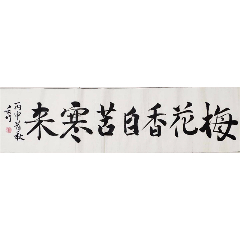 梅花香自苦寒来
丙申初秋